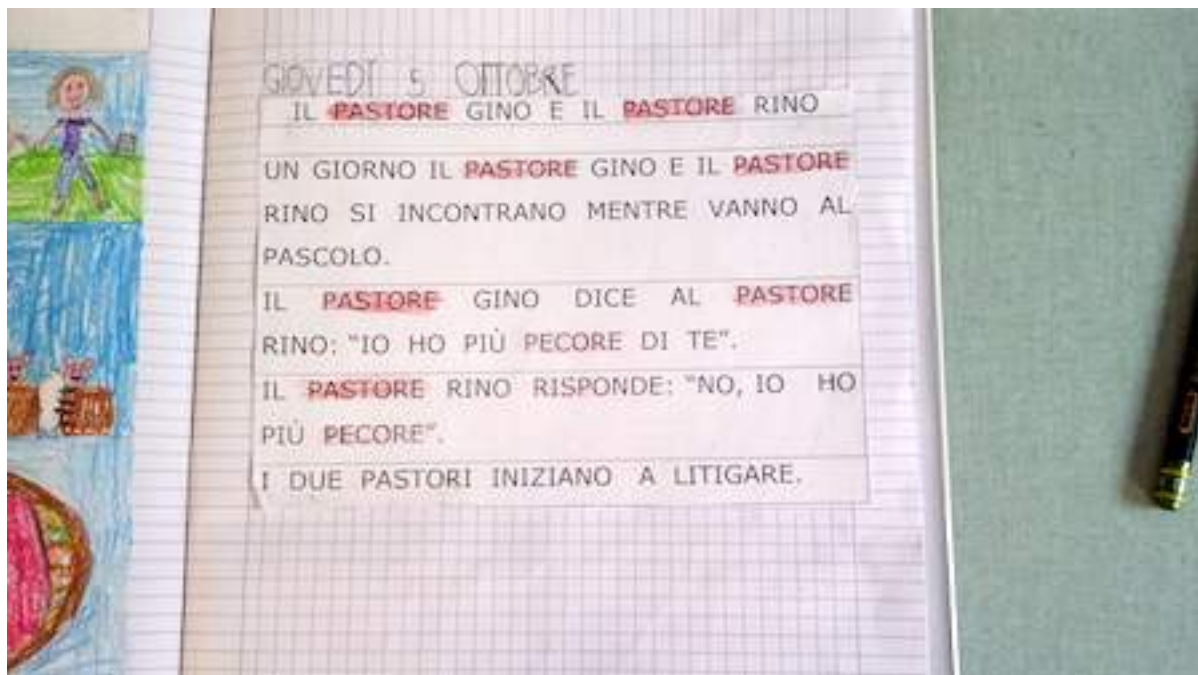 GIOVEDÌ 5 OTTOBRE
IL PASTORE GINO E IL PASTORE RINO
UN GIORNO IL PASTORE GINO E IL PASTORE
RINO SI INCONTRANO MENTRE VANNO AL
PASCOLO.
IL PASTORE GINO DICE AL PASTORE
RINO: "IO HO PIÙ PECORE DI TE".
IL PASTORE RINO RISPONDE: "NO, IO HO
PIÙ PECORE".
I DUE PASTORI INIZIANO A LITIGARE.